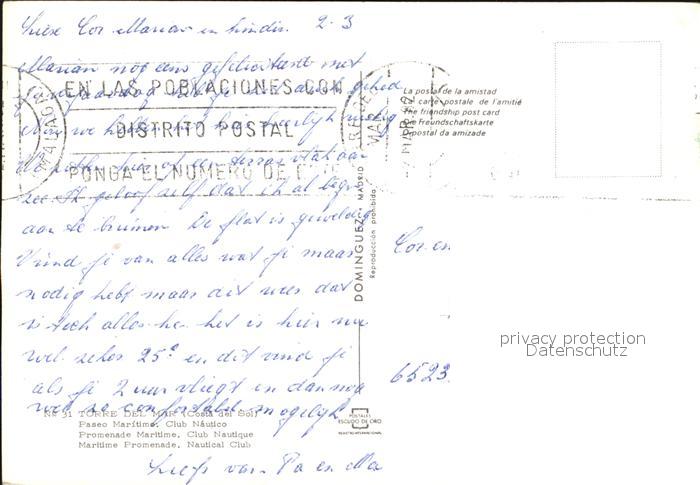 Liese Cor Marian en kinder. 2-3
Marian nog eens gefeliciteerd met
EN LAS POBLACIONES CON
DISTRITO POSTAL
PONGA EL NUMERO DE
MALAGA
we hier
op een terras vlak aan
zee Ik geloof zelf dat ik al begin
aan te bruinen De flat is geweldig
Vind je van alles wat je maar
nodig hebt maar dit was dat
is toch alles he het is hier nu
wel zeker 25° en dit vind je
als je 2 uur vliegt en dan nog
wel zo comfortabel mogelijk
Liefs van Pa en Ma
Nº 31 TORRE DEL MAR (Costa del Sol)
Paseo Marítimo, Club Náutico
Promenade Maritime, Club Nautique
Maritime Promenade, Nautical Club
DOMINGUEZ - MADRID
Reproducción prohibida
POSTALES
ESCUDO DE ORO
La postal de la amistad
La carte postale de l'amitié
The friendship post card
Die Freundschaftskarte
O postal da amizade
Cor en
6523
privacy protection
Datenschutz